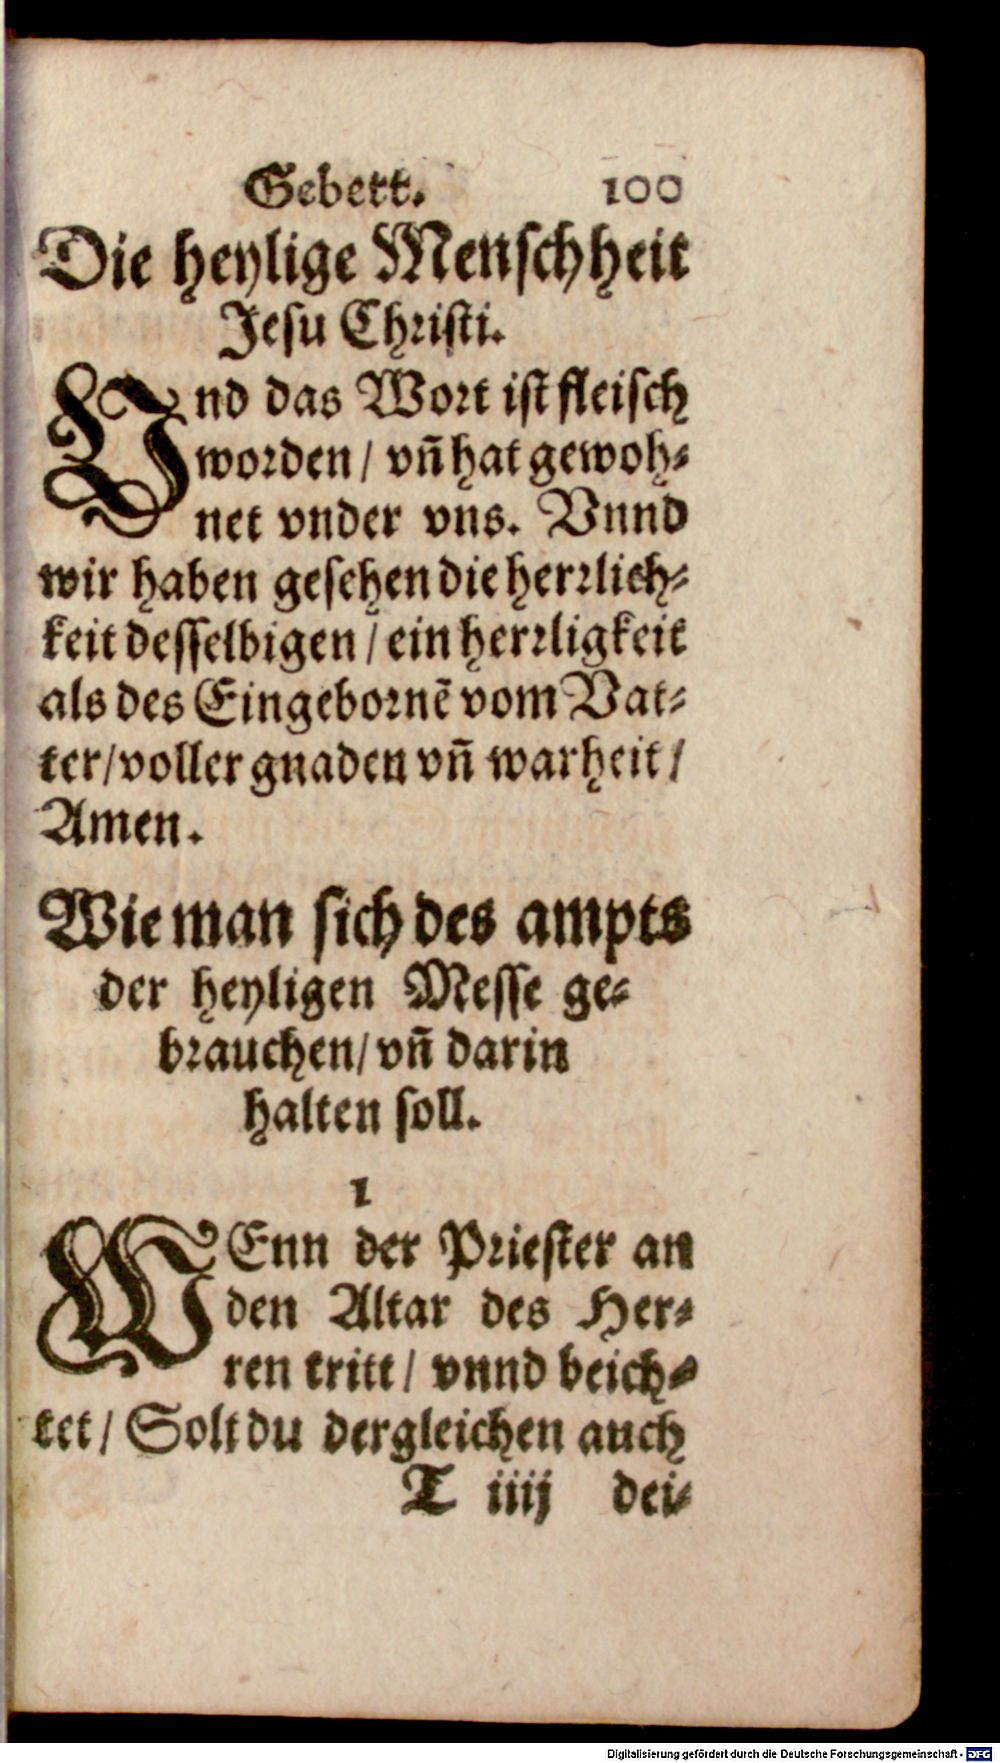 Gebett. 100
Die heylige Menschheit
Jesu Christi.
VNd das Wort ist fleisch
worden / vñ hat gewoh⸗
net vnder vns. Vnnd
wir haben gesehen die herrlich⸗
keit desselbigen / ein herrligkeit
als des Eingebornẽ vom Vat⸗
ter / voller gnaden vñ warheit /
Amen.
Wie man sich des ampts
der heyligen Messe ge⸗
brauchen / vñ darin
halten soll.
1
WEnn der Priester an
den Altar des Her⸗
ren tritt / vnnd beich⸗
tet / Solt du dergleichen auch
T iiij dei⸗
Digitalisierung gefördert durch die Deutsche Forschungsgemeinschaft - DFG